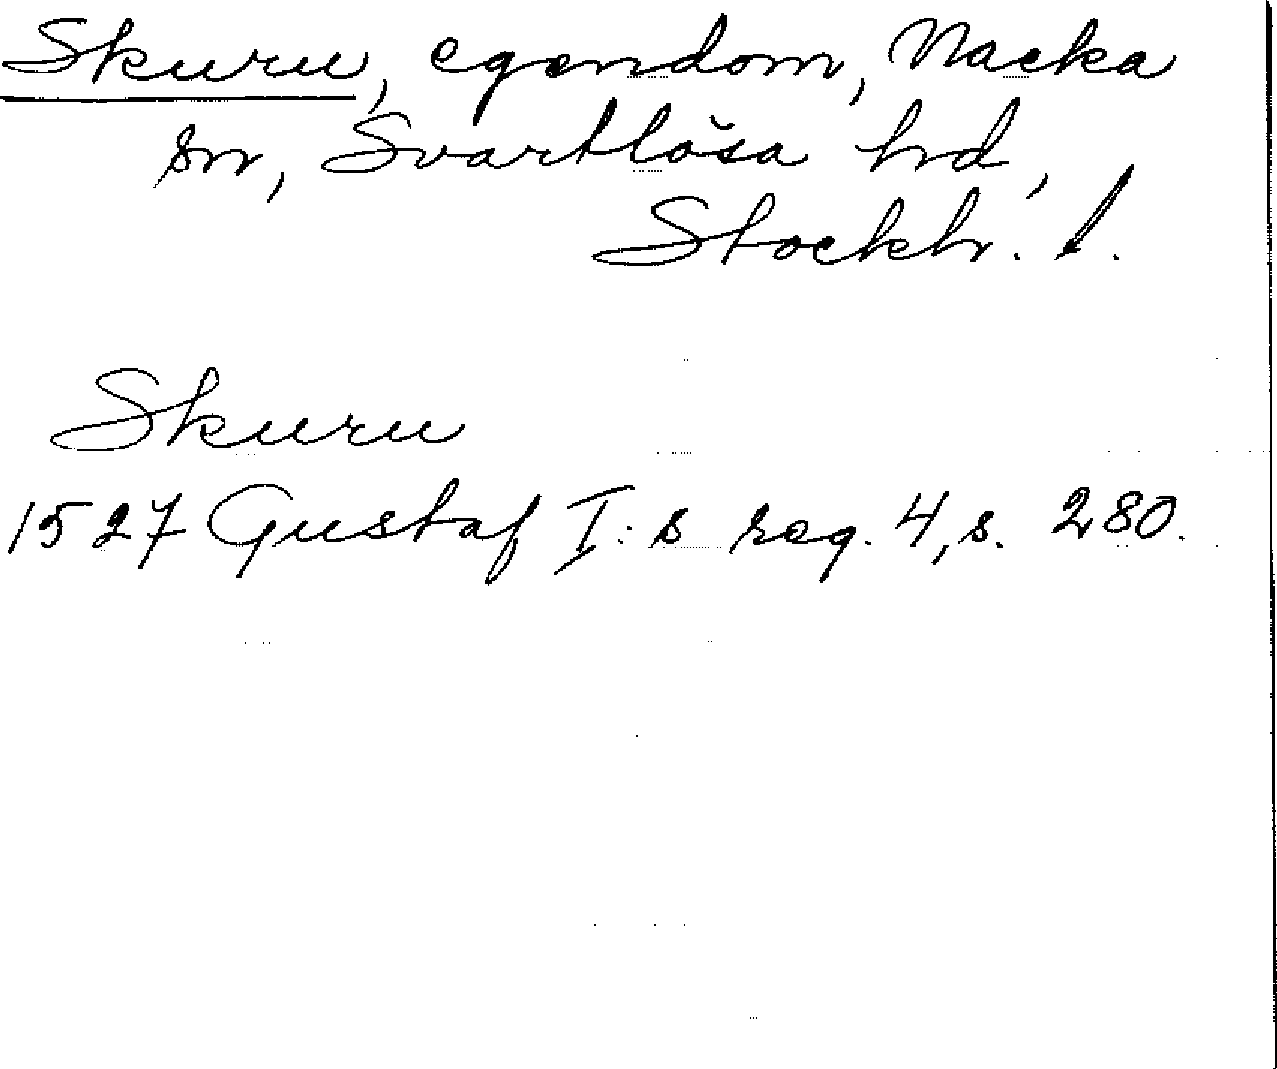 Skuru, egendom, Nacka
sn, Svartlösa hd,
Stockh. l.
Skuru
1527 Gustaf I:s reg. 4, s. 280.